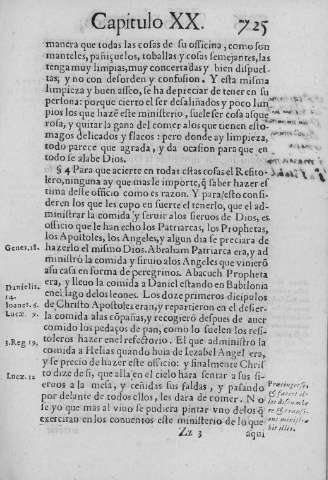 Capitulo XX. 725
manera que todas las cosas de su officina, como son
manteles, pañiçuelos, toballas y cosas semejantes, las
tenga muy limpias, muy concertadas y bien dispues-
tas; y no con desorden y confusion. Y esta misma
limpieza y buen asseo, se ha de preciar de tener en su
persona: porque cierto el ser desaliñados y poco lim-
pios los que hazẽ este ministerio, suele ser cosa asque
rosa, y quitar la gana del comer a los que tienen esto-
magos delicados y flacos: pero donde ay limpieza,
todo parece que agrada, y da ocasion para que en
todo se alabe Dios.
§ 4 Para que acierte en todas estas cosas el Refito-
lero, ninguna ay que mas le importe, q̃ saber hazer es
tima deste officio como es razon. Y para esto consi-
deren los que les cupo en suerte el tenerlo, que el ad-
ministrar la comida y seruir a los sieruos de Dios, es
officio que le han echo los Patriarcas, los Prophetas,
los Apostoles, los Angeles, y algun dia se preciara de
Genes, 18.
hazerlo el mismo Dios. Abraham Patriarca era, y ad
ministrò la comida y siruio a los Angeles que vinierõ
a su casa en forma de peregrinos. Abacuch Propheta
Danielis. 14.
era, y lleuo la comida a Daniel estando en Babilonia
en el lago de los leones. Los doze primeros dicipulos
Ioanet. 6.
de Christo Apostoles eran, y repartieron en el desier-
Lucæ. 9.
to la comida a las cõpañas, y recogierõ despues de auer
comido los pedaços de pan, como lo suelen los refi-
toleros hazer en el refectorio. El que administrò la
1. Reg 19,
comida a Helias quando huia de Iezabel Angel era,
y se precio de hazer este officio: y finalmente Chris
to dize de si, que alla en el cielo hara sentar a sus si-
Lucæ. 12
eruos a la mesa, y ceñidas sus faldas, y pasando
por delante de todos ellos, les dara de comer. No
se yo que mas al viuo se pudiera pintar vno de los q̃
exercitan en los conuentos este ministerio de lo que
Zz 3 aqui